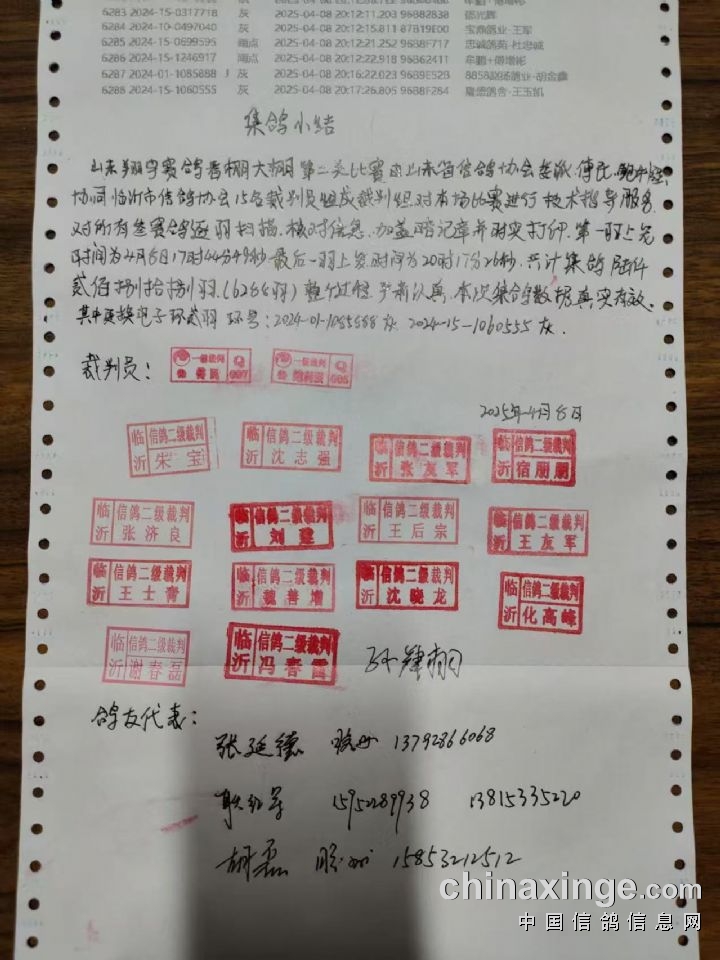 6283 2024-15-0317718 灰 2025-04-08 20:12:11.203 96882838
6284 2024-10-0497040 灰 2025-04-08 20:12:15.811 87819E00 宝鼎鸽业-王军
6285 2024-15-0699595 雨点 2025-04-08 20:12:21.252 9688F717 忠诚鸽苑-杜忠诚
6286 2024-15-1246917 雨点 2025-04-08 20:12:22.918 96862411
6287 2024-01-1085888 J 灰 2025-04-08 20:16:22.023 9689E528 8858赵杨鸽业-胡金鑫
6288 2024-15-1060555 灰 2025-04-08 20:17:26.805 9688F284 鸽舍-王玉凯
集鸽小结
山东翔宇赛鸽春棚大棚第二关比赛由山东省信鸽协会委派傅民、
协同临沂市信鸽协会15名裁判员组成裁判组.对本场比赛进行技术指导服务.
对所有参赛鸽逐羽扫描.核对信息.加盖暗记章并时实打印.第一羽上笼
时间为4月8日17时44分49秒.最后一羽上笼时间为20时17分26秒.共计集鸽陆仟
贰佰捌拾捌羽.(6288羽)整个过程.严肃认真.本次集鸽数据真实有效.
其中更换电子环贰羽 环号:2024-01-1085888灰 2024-15-1060555灰.
裁判员: 一级裁判 007 一级裁判 005
2025年4月8日
临沂 信鸽二级裁判 朱宝 临沂 信鸽二级裁判 沈志强 临沂 信鸽二级裁判 张友军 临沂 信鸽二级裁判 宿朋朋
临沂 信鸽二级裁判 张济良 临沂 信鸽二级裁判 刘 临沂 信鸽二级裁判 王后宗 临沂 信鸽二级裁判 王友军
临沂 信鸽二级裁判 王士青 临沂 信鸽二级裁判 魏善增 临沂 信鸽二级裁判 沈晓龙 临沂 信鸽二级裁判 化高峰
临沂 信鸽二级裁判 谢春磊 临沂 信鸽二级裁判 冯春雷
鸽友代表:
张延德 13792866068
耿红军 15952289938 13815335220
胡磊 胶州 15853212512
chinaxinge.com
中国信鸽信息网